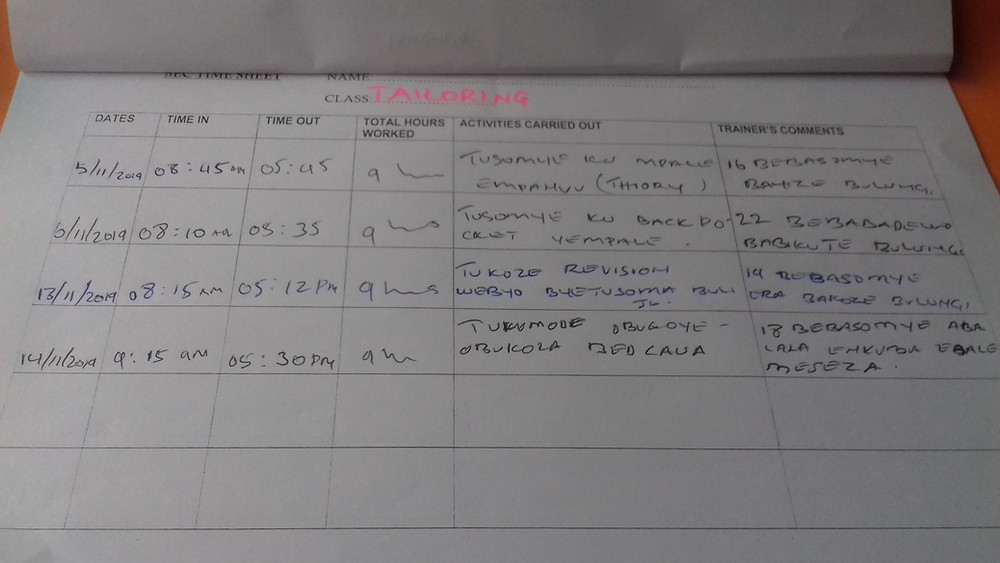 DEC TIME SHEET NAME
CLASS: TAILORING
DATES TIME IN TIME OUT TOTAL HOURS WORKED ACTIVITIES CARRIED OUT TRAINER'S COMMENTS
5/11/2019 08:45 AM 05:45 9
TUSOMYE KU MPALLE
EMPAHVU (THIORY)
16 BEBASOMYE
BAKOZE BULUNGI.
6/11/2019 08:10 AM 05:35 9
TUSOMYE KU BACK PO-
CKET YEMPALE.
22 BEBABADEWO
BABIKUTE BULUNGI
13/11/2019 08:15 AM 05:12 PM 9
TUKOZE REVISION
WEBYO BYETUSOMA BULI
19 BEBASOMYE
ERA BAKOZE BULUNGI,
14/11/2019 9:15 am 05:30 PM 9
TUKUMODE OBUGOYE-
OBUKOZA BED
18 BEBASOMYE ABA
LALA ENKUBA EBALE
MESEZA.